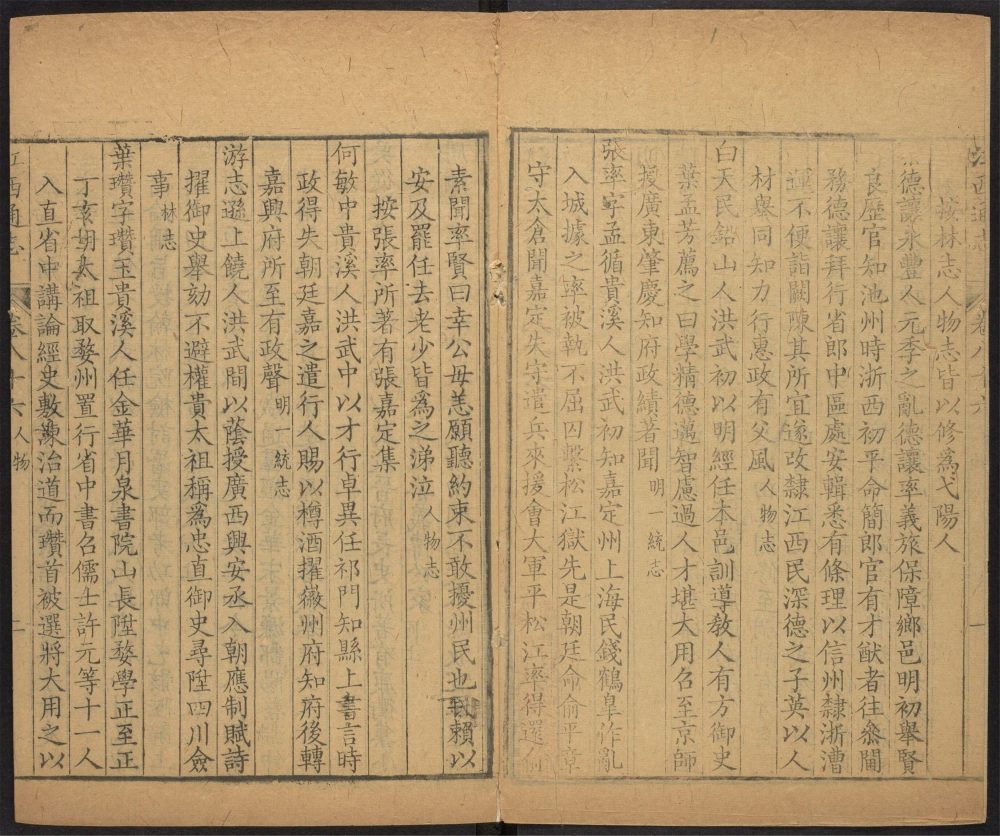 江西通志 卷八十六 一
按林志人物志皆以修爲弋陽人
德讓永豐人元季之亂德讓率義旅保障鄉邑明初舉賢
良歷官知池州時浙西初平命簡郎官有才猷者往叅閫
務德讓拜行省郎中區處安輯悉有條理以信州隸浙漕
運不便詣闕陳其所宜遂改隸江西民深德之子英以人
材舉同知力行惠政有父風人物志
白天民鉛山人洪武初以明經任本邑訓導敎人有方御史
葉孟芳薦之曰學精德邁智慮過人才堪大用召至京師
授廣東肇慶知府政績著聞明一統志
張率字孟循貴溪人洪武初知嘉定州上海民錢鶴臯作亂
入城據之率被執不屈囚繫松江獄先是朝廷命俞平章
守太倉聞嘉定失守遣兵來援會大軍平松江率得還俞
素聞率賢曰幸公毋恙願聽約束不敢擾州民也民賴以
安及罷任去老少皆爲之涕泣人物志
按張率所著有張嘉定集
何敏中貴溪人洪武中以才行卓異任祁門知縣上書言時
政得失朝廷嘉之遣行人賜以樽酒擢徽州府知府後轉
嘉興府所至有政聲明一統志
游志遜上饒人洪武間以蔭授廣西興安丞入朝應制賦詩
擢御史舉劾不避權貴太祖稱爲忠直御史尋陞四川僉
事林志
葉瓚字瓚玉貴溪人任金華月泉書院山長陞婺學正至正
丁亥明太祖取婺州置行省中書召儒士許元等十一人
入直省中講論經史敷陳治道而瓚首被選將大用之以
江西通志 卷八十六 人物 二